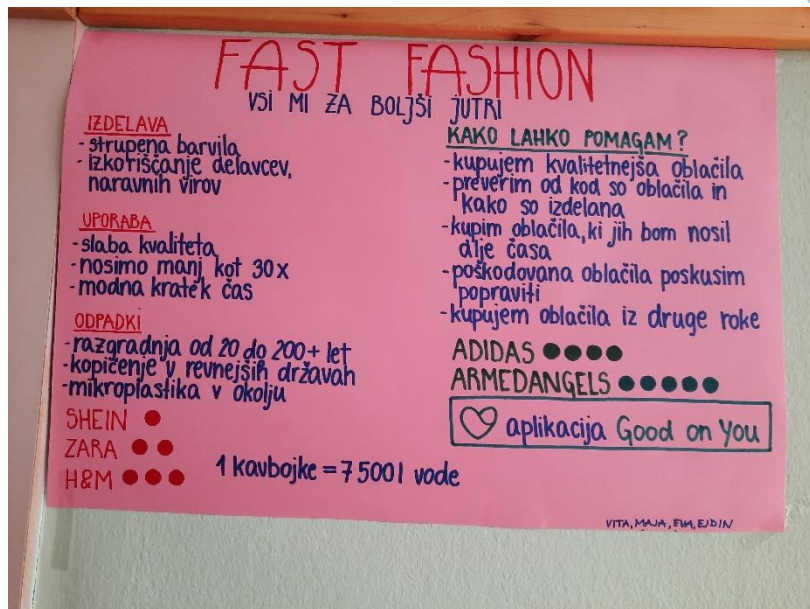 FAST FASHION
VSI MI ZA BOLJŠI JUTRI
IZDELAVA
- strupena barvila
- izkoriščanje delavcev,
naravnih virov
UPORABA
- slaba kvaliteta
- nosimo manj kot 30x
- modna kratek čas
ODPADKI
- razgradnja od 20 do 200+ let
- kopičenje v revnejših državah
- mikroplastika v okolju
SHEIN ●
ZARA ● ●
H&M ● ● ●
1 kavbojke = 7500l vode
KAKO LAHKO POMAGAM?
- kupujem kvalitetnejša oblačila
- preverim od kod so oblačila in
kako so izdelana
- kupim oblačila, ki jih bom nosil
dlje časa
- poškodovana oblačila poskusim
popraviti
- kupujem oblačila iz druge roke
ADIDAS ● ● ● ●
ARMEDANGELS ● ● ● ● ●
aplikacija Good on You
VITA, MAJA, EVA, EJDIN